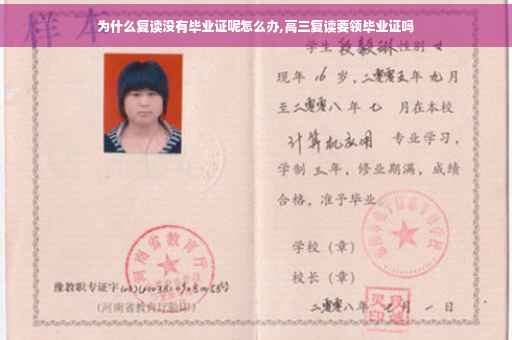 为什么复读没有毕业证呢怎么办,高三复读要领毕业证吗
样本
学生 段毅琳 性别 女
现年 16 岁,二零零五年 九月
至二零零八年 七 月在本校
计算机应用 专业学习,
学制 三 年,修业期满,成绩
合格,准予毕业
学校(章)
河南省教育厅
校长(章)
豫教职专证字
(河南省教育厅验印)
二零零八年 七 月 一 日